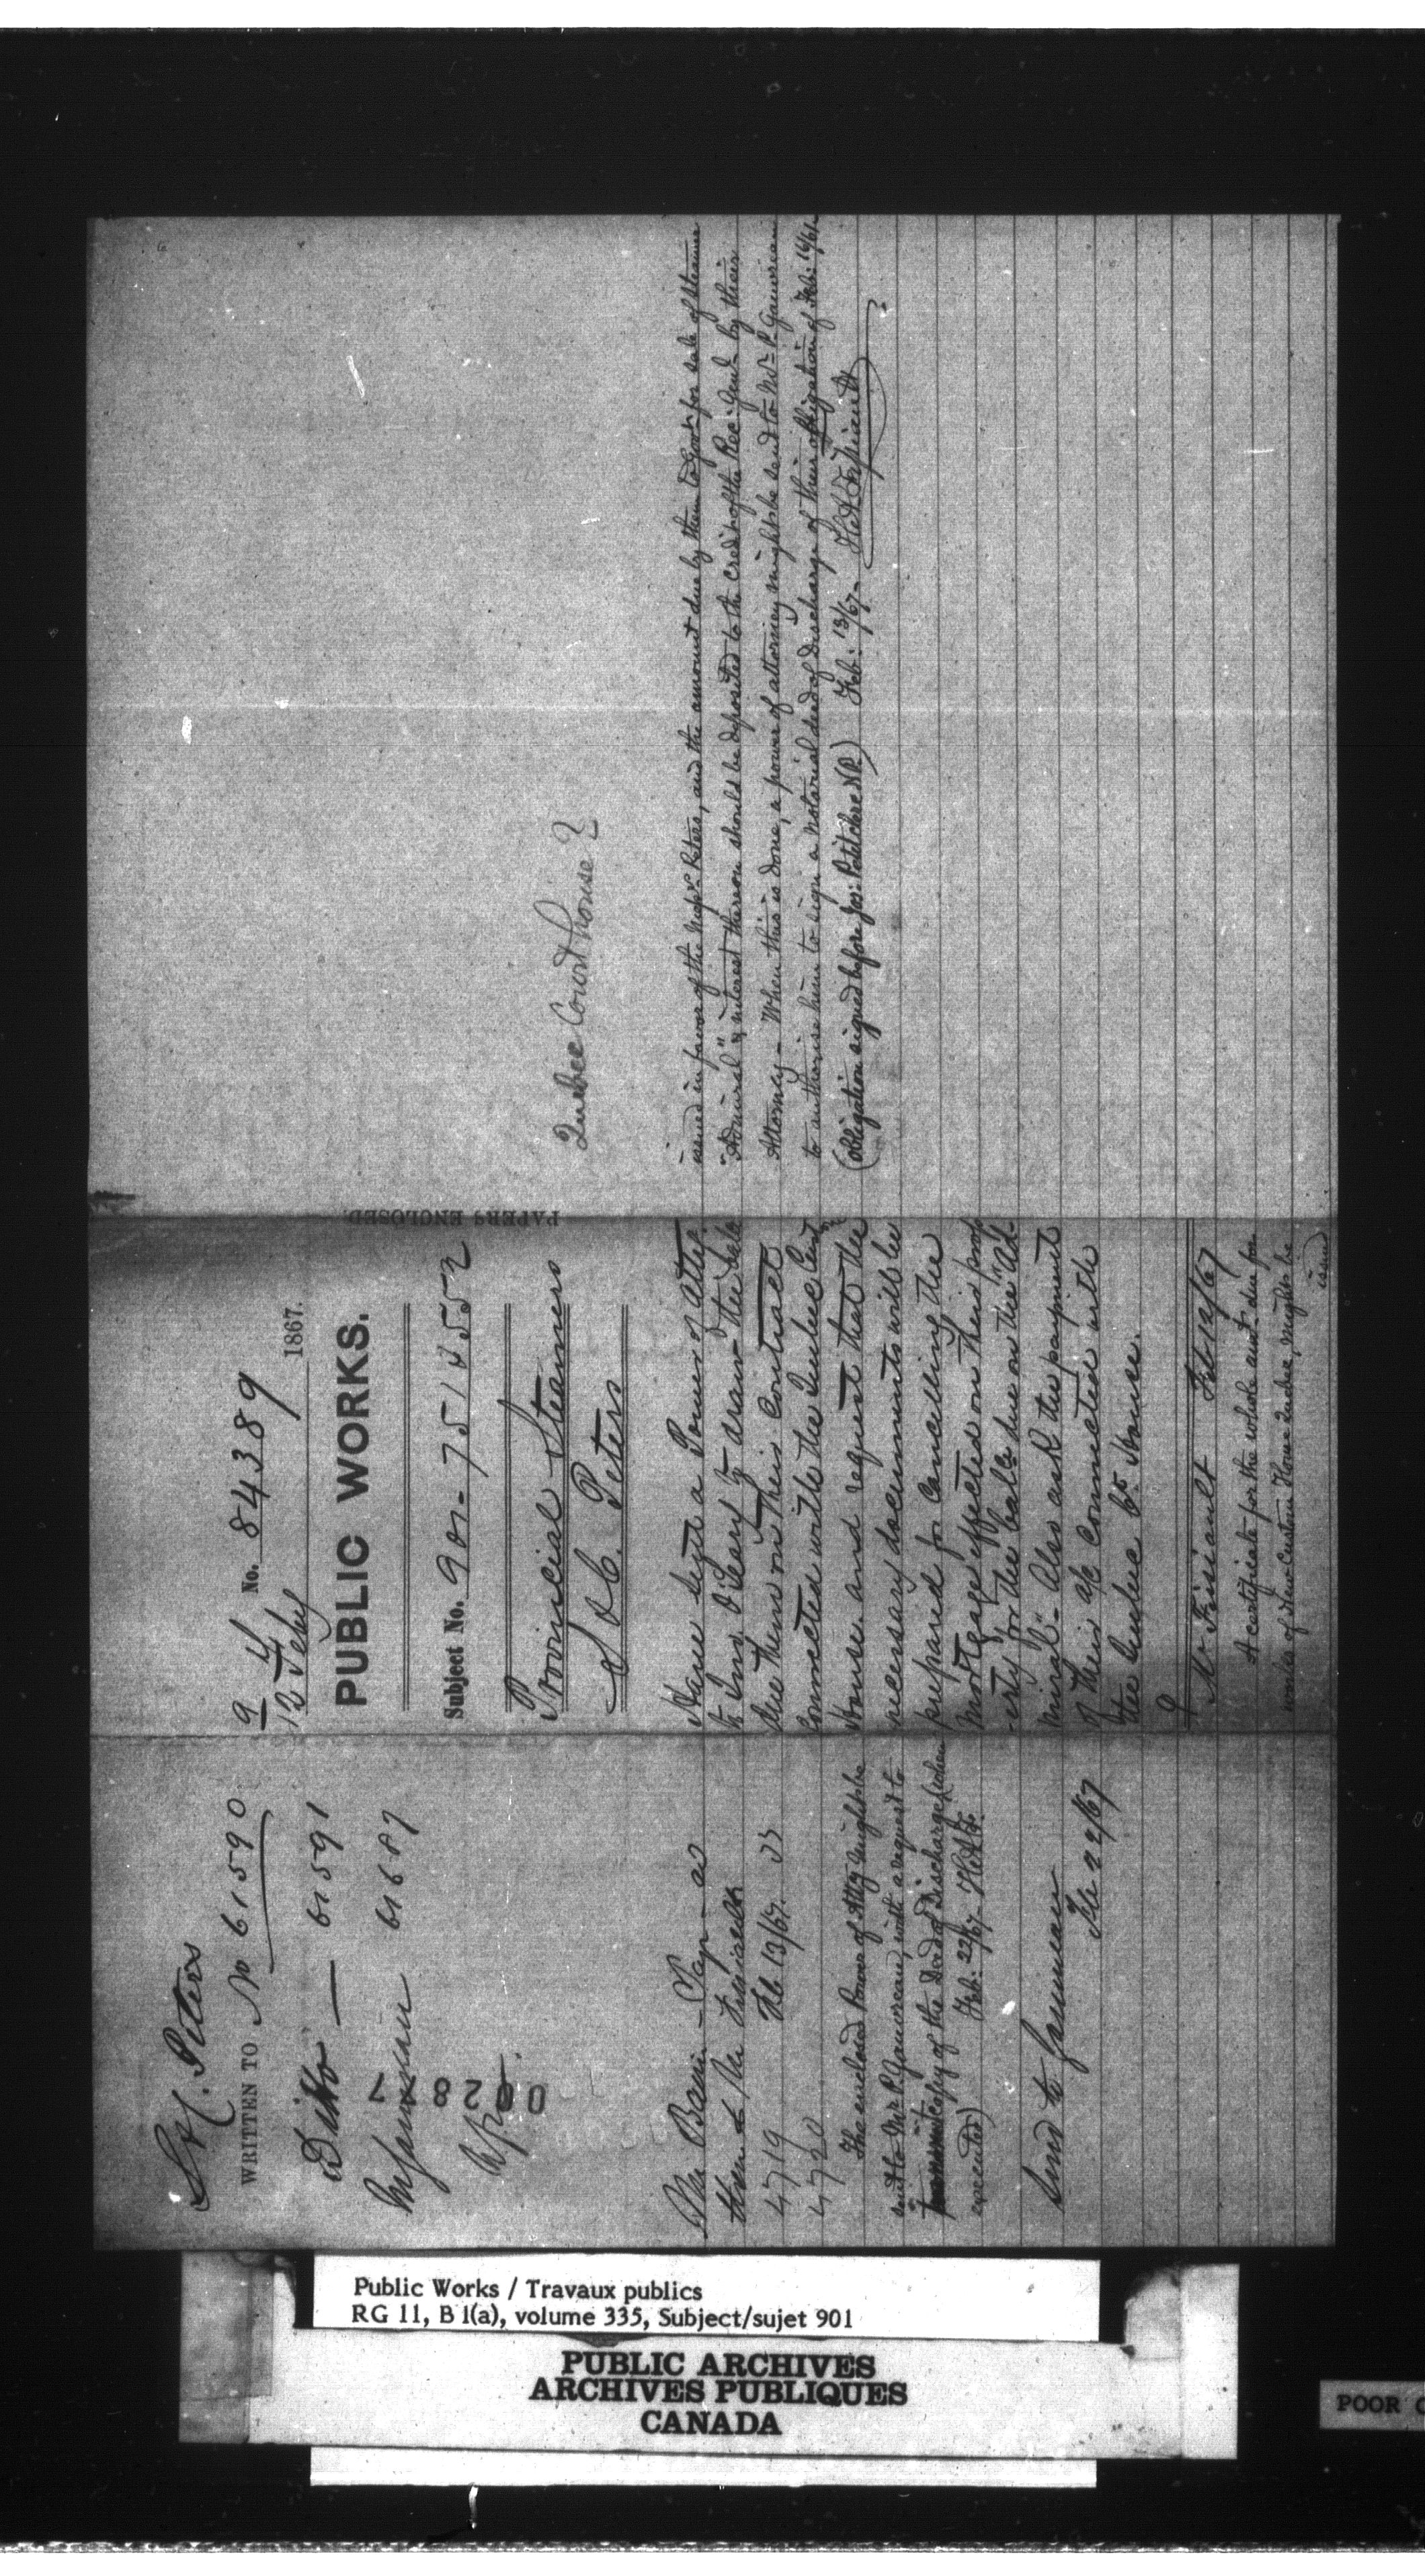 S & C. Peters
WRITTEN TO No 61590
Ditto — 61591
61687
00287
Mr Baine — Pap
Feb 13/67.
4719
4720
The enclosed Power of Atty might be
sent to Mr P. Gauvreau, with a request to
copy of the Deed of Discharge (when
executed) Feb: 22/67. H.A.F.
Send to Gauvreau
Fe 22/67
No. 84389
12 Feby 1867.
PUBLIC WORKS.
Subject No. 901-751
Provincial Steamers
S & C. Peters
Have sent a Power of Atty.
to Jno. O'Leary to draw the bale
due them on their Contract
connected with the Quebec Cust
House. and request that the
necessary documents will be
prepared for cancelling the
mortgage effected on their prop
-erty for the balce due on the "Ad-
miral"- Also ask the payment
of their a/c connected with
the Quebec Ct. House.
Mr Fissiault Feb 12/67
A certificate for the whole amt. due for
works of New Custom House Quebec, might be
issued
PAPERS ENCLOSED.
Quebec Court house ?
issued in favor of the Messrs. Peters, and the amount due by them to Govt for sale of steamer
"Admiral" & interest thereon should be deposited to the credit of the Rec: Genl. by their
Attorney — When this is done, a power of attorney might be send to Mr. P. Gauvreau
to authorise him to sign a notarial deed of Discharge of their obligation of Feb: 16/61
(Obligation signed before Jos: Petitclerc N.P.) Feb: 13/67-
Public Works / Travaux publics
RG 11, B 1(a), volume 335, Subject/sujet 901
PUBLIC ARCHIVES
ARCHIVES PUBLIQUES
CANADA
POOR